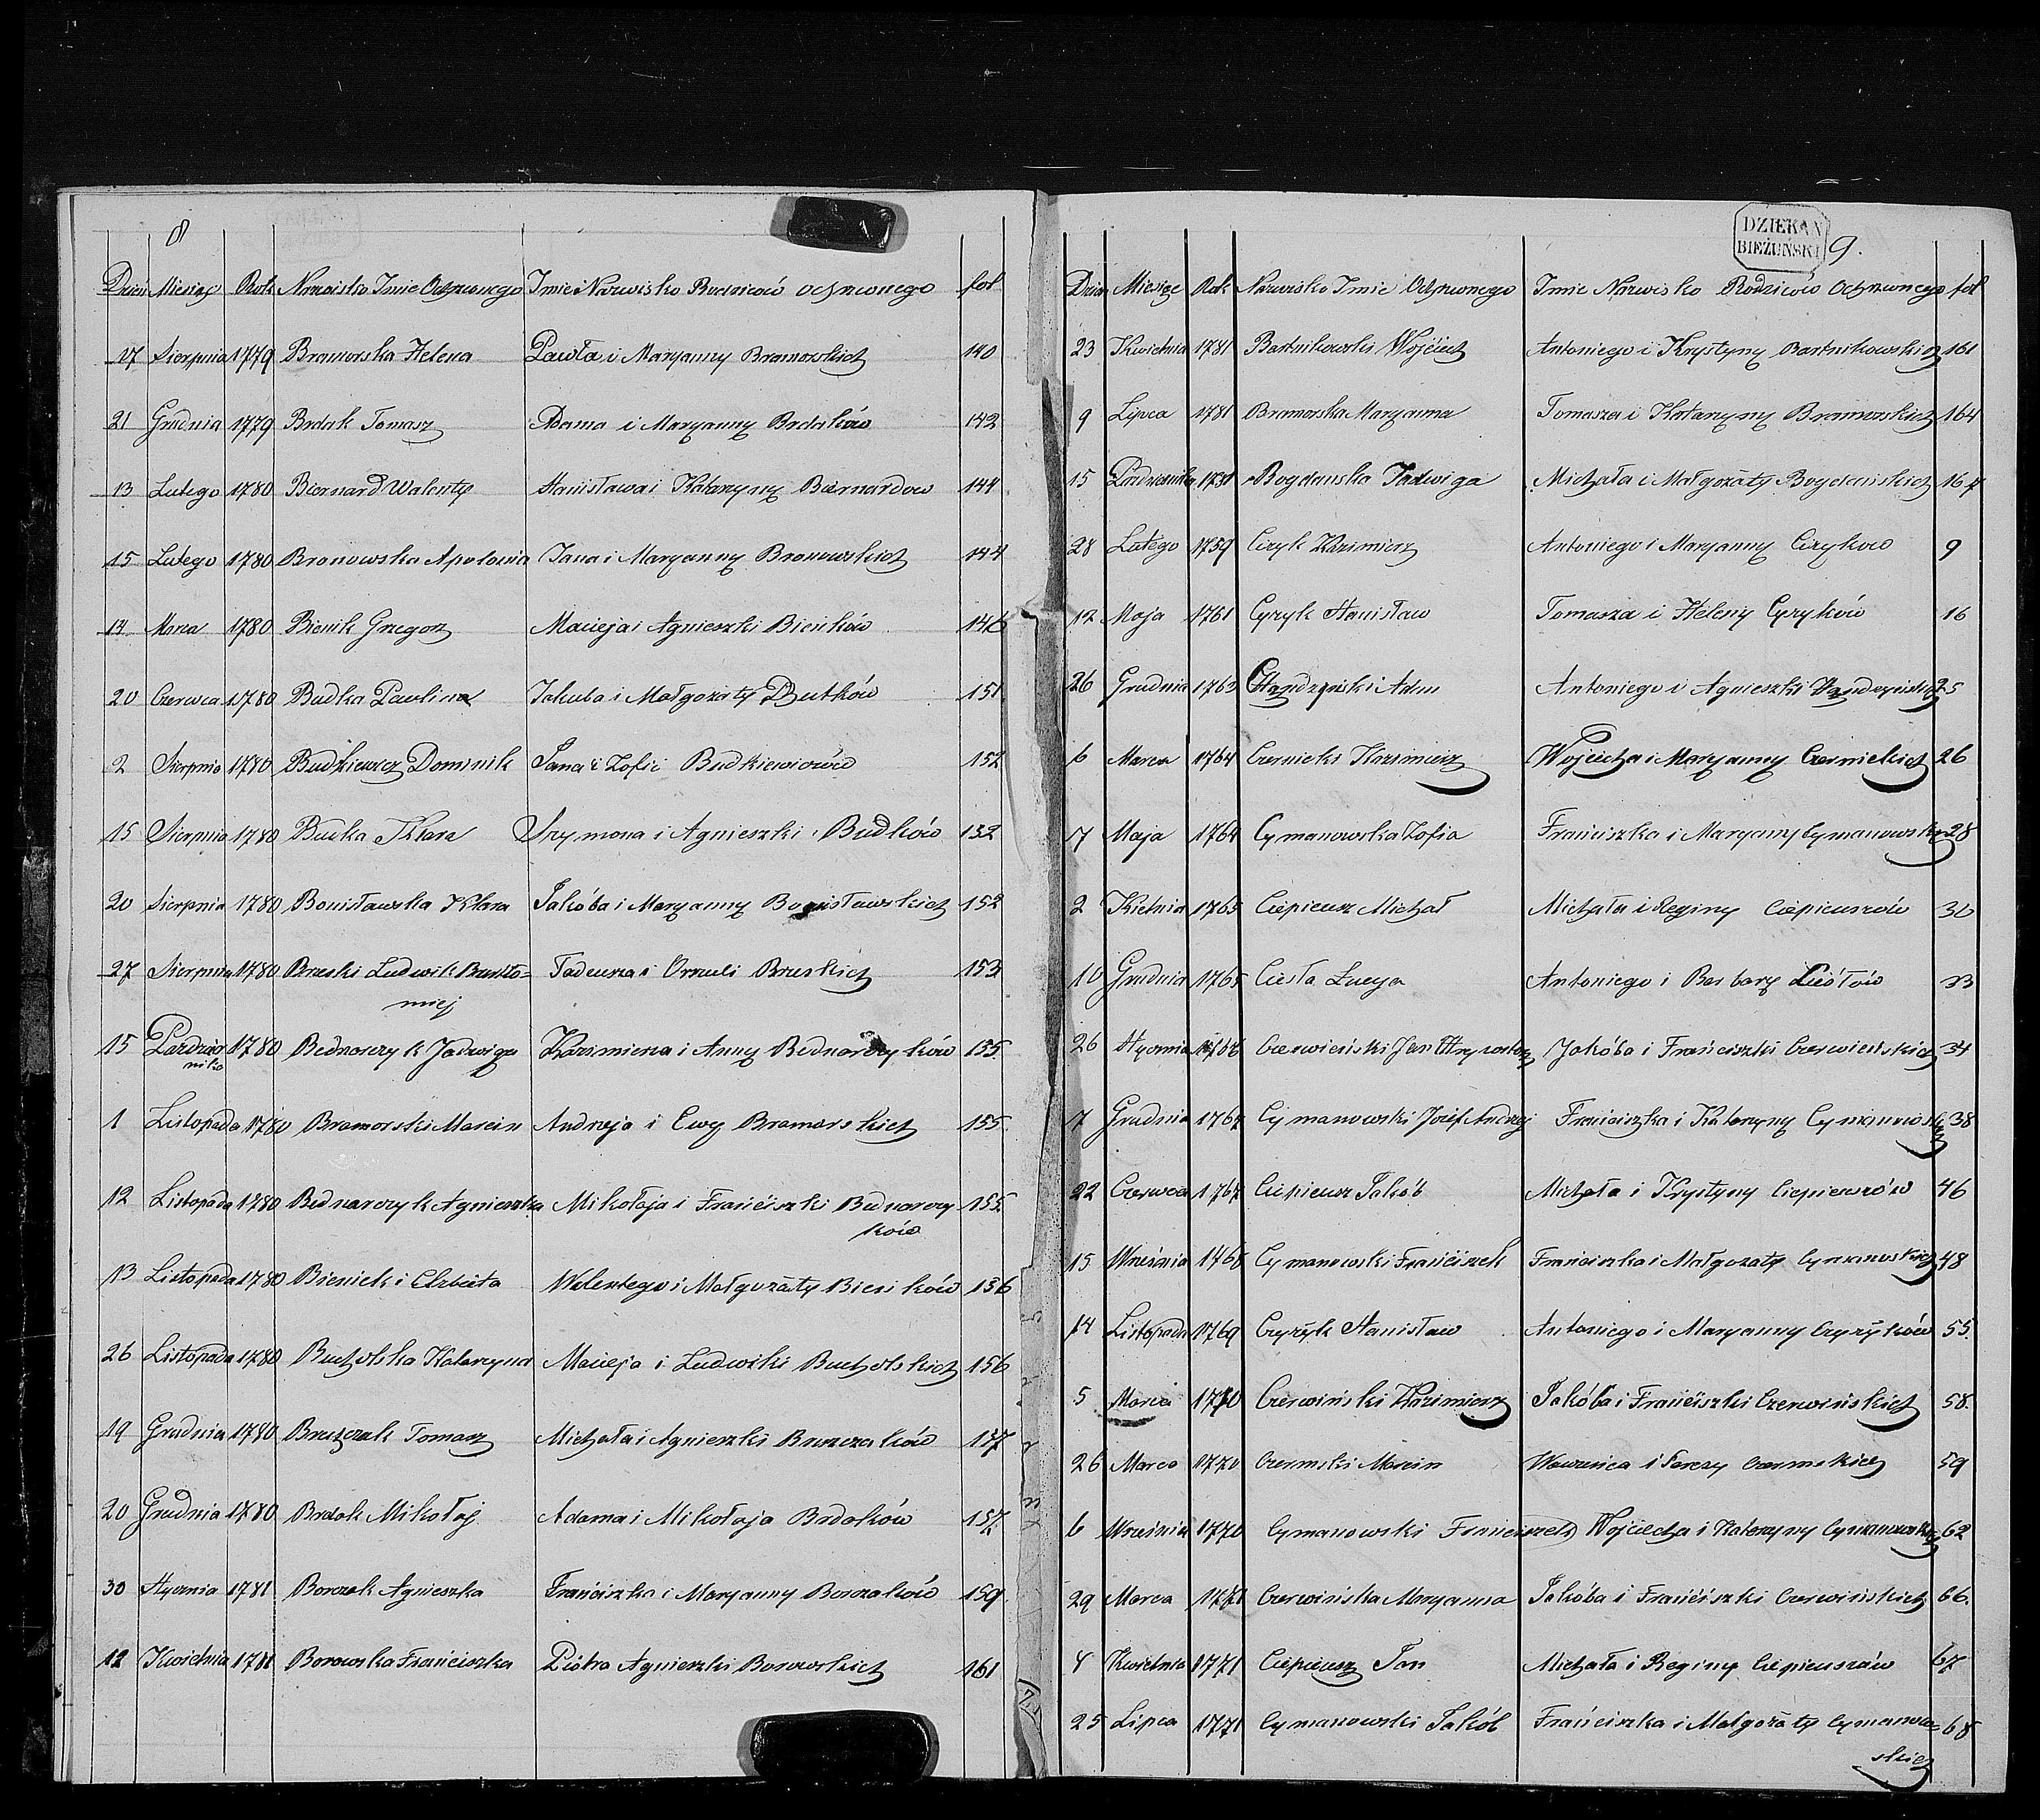 8
Dzień Miesiąc Rok Nazwisko Imie Ochrzconego Imie i Nazwisko Rodziców ochrzconego fol
17 Sierpnia 1779 Bramorska Helena Pawła i Maryanny Bramorskich 140
21 Grudnia 1779 Brdak Tomasz Adama i Maryanny Brdaków 142
13 Lutego 1780 Biernard Walenty Stanisława i Katarzyny Biernardow 144
15 Lutego 1780 Bronowska Apolonia Jana i Maryanny Bronowskich 144
14 Marca 1780 Bienik Grzegorz Macieja i Agnieszki Bieńków 146
20 Czerwca 1780 Budka Paulina Jakuba i Małgorzaty Butków 151
2 Sierpnia 1780 Budkiewicz Dominik Jana i Zofii Budkiewiczów 152
15 Sierpnia 1780 Budka Klara Szymona i Agnieszki Budków 152
20 Sierpnia 1780 Bonisławska Klara Jakóba i Maryanny Bonisławskich 152
27 Sierpnia 1780 Bruski Ludwik Bartło=
miej Tadeusza i Orszuli Bruskich 153
15 Pazdzier
nika 1780 Bednarczyk Jadwiga Kazimierza i Anny Bednarczyków 155
1 Listopada 1780 Bramorski Marcin Andrzeja i Ewy Bramorskich 155
12 Listopada 1780 Bednarczyk Agnieszka Mikołaja i Franciszki Bednarczy
ków 155
13 Listopada 1780 Bieniek i Elzbieta Walentego i Małgorzaty Bieńków 156
26 Listopada 1780 Bucholska Katarzyna Macieja i Ludwiki Bucholskich 156
19 Grudnia 1780 Bruszczak Tomasz Michała i Agnieszki Bruszczaków 157
20 Grudnia 1780 Brdak Mikołaj Adama i Mikołaja Brdaków 157
30 Stycznia 1781 Borczak Agnieszka Franciszka i Maryanny Borczaków 159
12 Kwietnia 1781 Borowska Franciszka Piotra Agnieszki Borowskich 161
DZIEKAN
BIEŻUŃSKI
9.
Dzień Miesiąc Rok Nazwisko Imie Ochrzconego Imie Nazwisko Rodziców Ochrzconego fol
23 Kwietnia 1781 Bartnikowski Wojciech Antoniego i Krystyny Bartnikowskich 161
9 Lipca 1781 Bramorska Maryanna Tomasza i Katarzyny Bramorskich 164
15 Pazdziernika 1781 Bogdanska Jadwiga Michała i Małgorzaty Bogdańskich 167
28 Lutego 1759 Cizyk Kazimierz Antoniego i Maryanny Cizykow 9
12 Maja 1761 Cyzyk Stanisław Tomasza i Heleny Cyzyków 16
26 Grudnia 1763 Chandzyński Adam Antoniego i Agnieszki 25
6 Marca 1764 Czernicki Kazimierz Wojciecha i Maryanny Czernickich 26
7 Maja 1764 Cymanowska Zofia Franciszka i Maryanny Cymanowskich 28
2 Kwietnia 1765 Ciepieusz Michał Michała i Reginy Ciepieuszów 30
10 Grudnia 1765 Ciesła Łucya Antoniego i Barbary Cieślów 33
26 Stycznia 1766 Czerwieński Jan Chryzostom Jakóba i Franciszki Czerwieńskich 34
7 Grudnia 1767 Cymanowski Józef Andrzej Franciszka i Katarzyny Cymanowskich 38
22 Czerwca 1767 Ciepieusz Jakób Michała i Krystyny Ciepieuszów 46
15 Wrzesnia 1768 Cymanowski Franciszek Franciszka i Małgorzaty Cymanowskich 48
14 Listopada 1769 Czyżyk Stanisław Antoniego i Maryanny Czyżyków 55.
5 Marca 1770 Czerwiński Kazimierz Jakóba i Franciszki Czerwińskich 58.
26 Marca 1770 Czermski Marcin Wawrzeńca i Tereszy Czermskich 59
6 Wrzesnia 1770 Cymanowski Franciszek Wojciecha i Katarzyny Cymanowskich 62
29 Marca 1771 Czerwińska Maryanna Jakóba i Franciszki Czerwińskich 66.
8 Kwietnia 1771 Ciepieusz Jan Michała i Reginy Ciepieuszów 67
25 Lipca 1771 Cymanowski Jakób Franciszka i Małgorzaty Cymanow=
skich 68